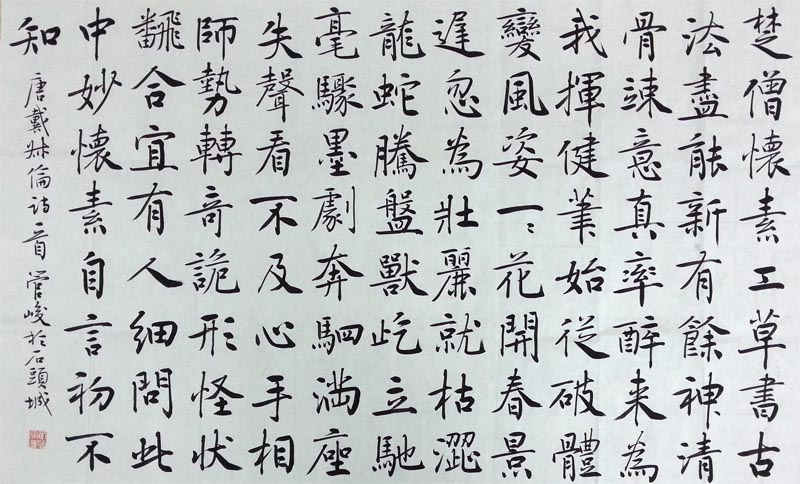 楚僧懷素工草書古
法盡能新有餘神清
骨竦意真率醉来為
我揮健筆始從破體
變風姿一々花開春景
遲忽為壯麗就枯澀
龍蛇騰盤獸屹立馳
毫驟墨劇奔駟滿座
失聲看不及心手相
師勢轉奇詭形怪狀
飜合宜有人細問此
中妙懷素自言初不
知
唐戴叔倫詩一首 管峻於石頭城